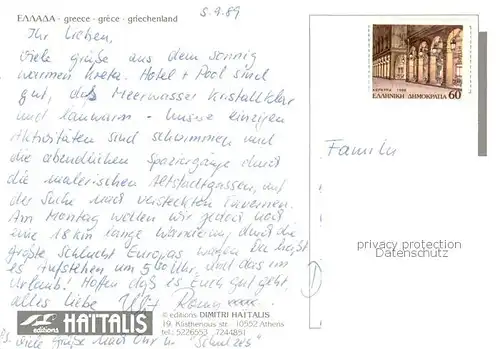 ΕΛΛΑΔΑ · greece · grèce · griechenland
5.9.89
Ihr Lieben,
viele Grüße aus dem sonnig
warmen Kreta. Hotel + Pool sind
gut, das Meerwasser Kristallklar
und lauwarm - Unsere einzigen
Aktivitäten sind schwimmen und
die abendlichen Spaziergänge durch
die malerischen Altstadtgassen, auf
der Suche nach versteckten Tavernen.
Am Montag wollen wir jedoch noch
eine 18 km lange Wanderung durch die
größte Schlucht Europas wagen. Da heißt
es Aufstehen um 5.00 Uhr, und das im
Urlaub! Hoffen daß es Euch gut geht,
alles Liebe
P.S. viele Grüße auch an "Schulzes"
editions HAITALIS
© editions DIMITRI HAITALIS
19, Kasthenous str. 10552 Athens
Tel.: 5226553 7244881
ΚΕΡΚΥΡΑ 1988
ΕΛΛΗΝΙΚΗ ΔΗΜΟΚΡΑΤΙΑ 60
Familie
privacy protection
Datenschutz